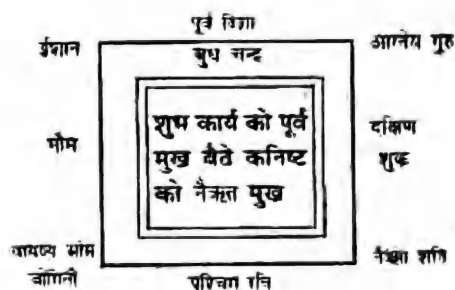 पूर्व दिशा
ईशान
बुध चन्द्र
आग्नेय गुरु
शुभ कार्य को पूर्व
मुख बैठे कनिष्ट
को नैऋत मुख
भौम
दक्षिण
शुक्र
वायव्य भौम
जोगिनी
पश्चिम रवि
शनि